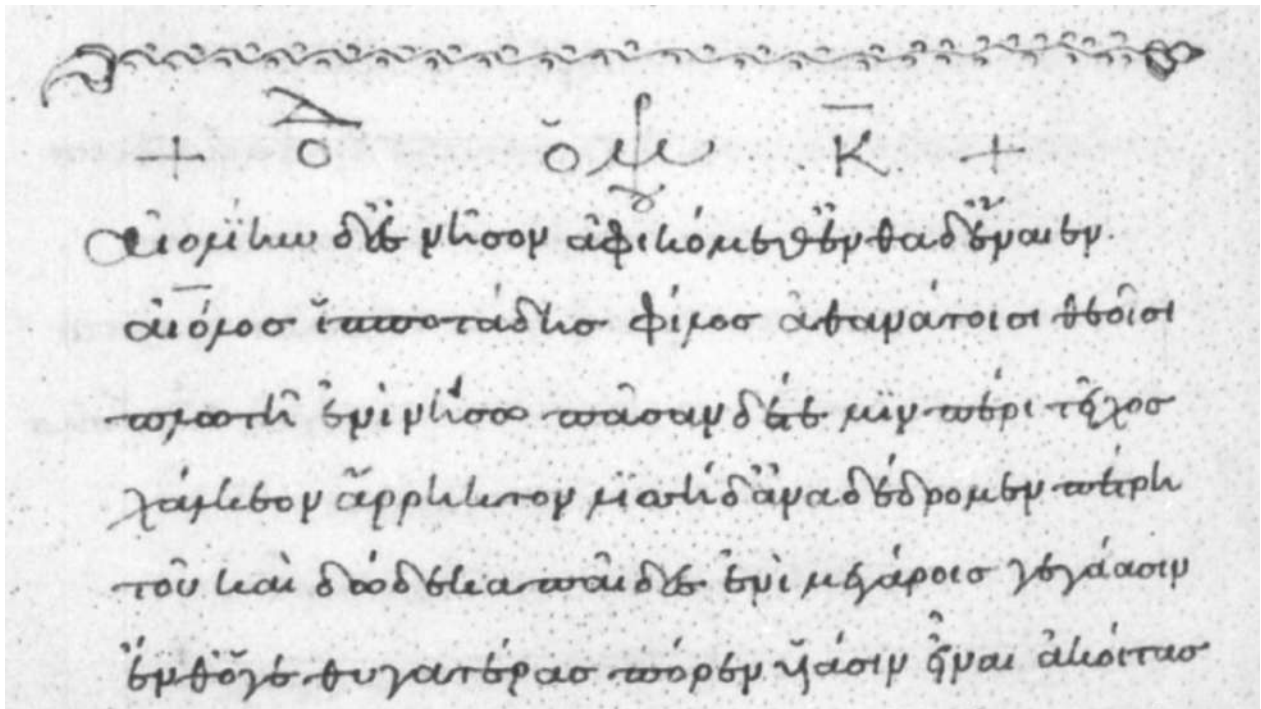 + Κ̄ +
Αἰολίην δ' ἐς νῆσον ἀφικόμεθ' ἔνθα δ' ἔναιεν.
αἰόλος ἱπποτάδης φίλος ἀθανάτοισι θεοῖσι
πλωτῆ ἐνὶ νήσω πᾶσαν δέ τέ μϊν πέρι τεῖχος
χάλκεον ἄρρηκτον λϊσσὴ δ' ἀναδέδρομεν πέτρη
τοῦ καὶ δώδεκα παῖδες ἐνὶ μεγάροις γεγάασιν
ἔνθ' ὅγε θυγατέρας πόρεν υἱάσιν εἶναι ἀκοίτας